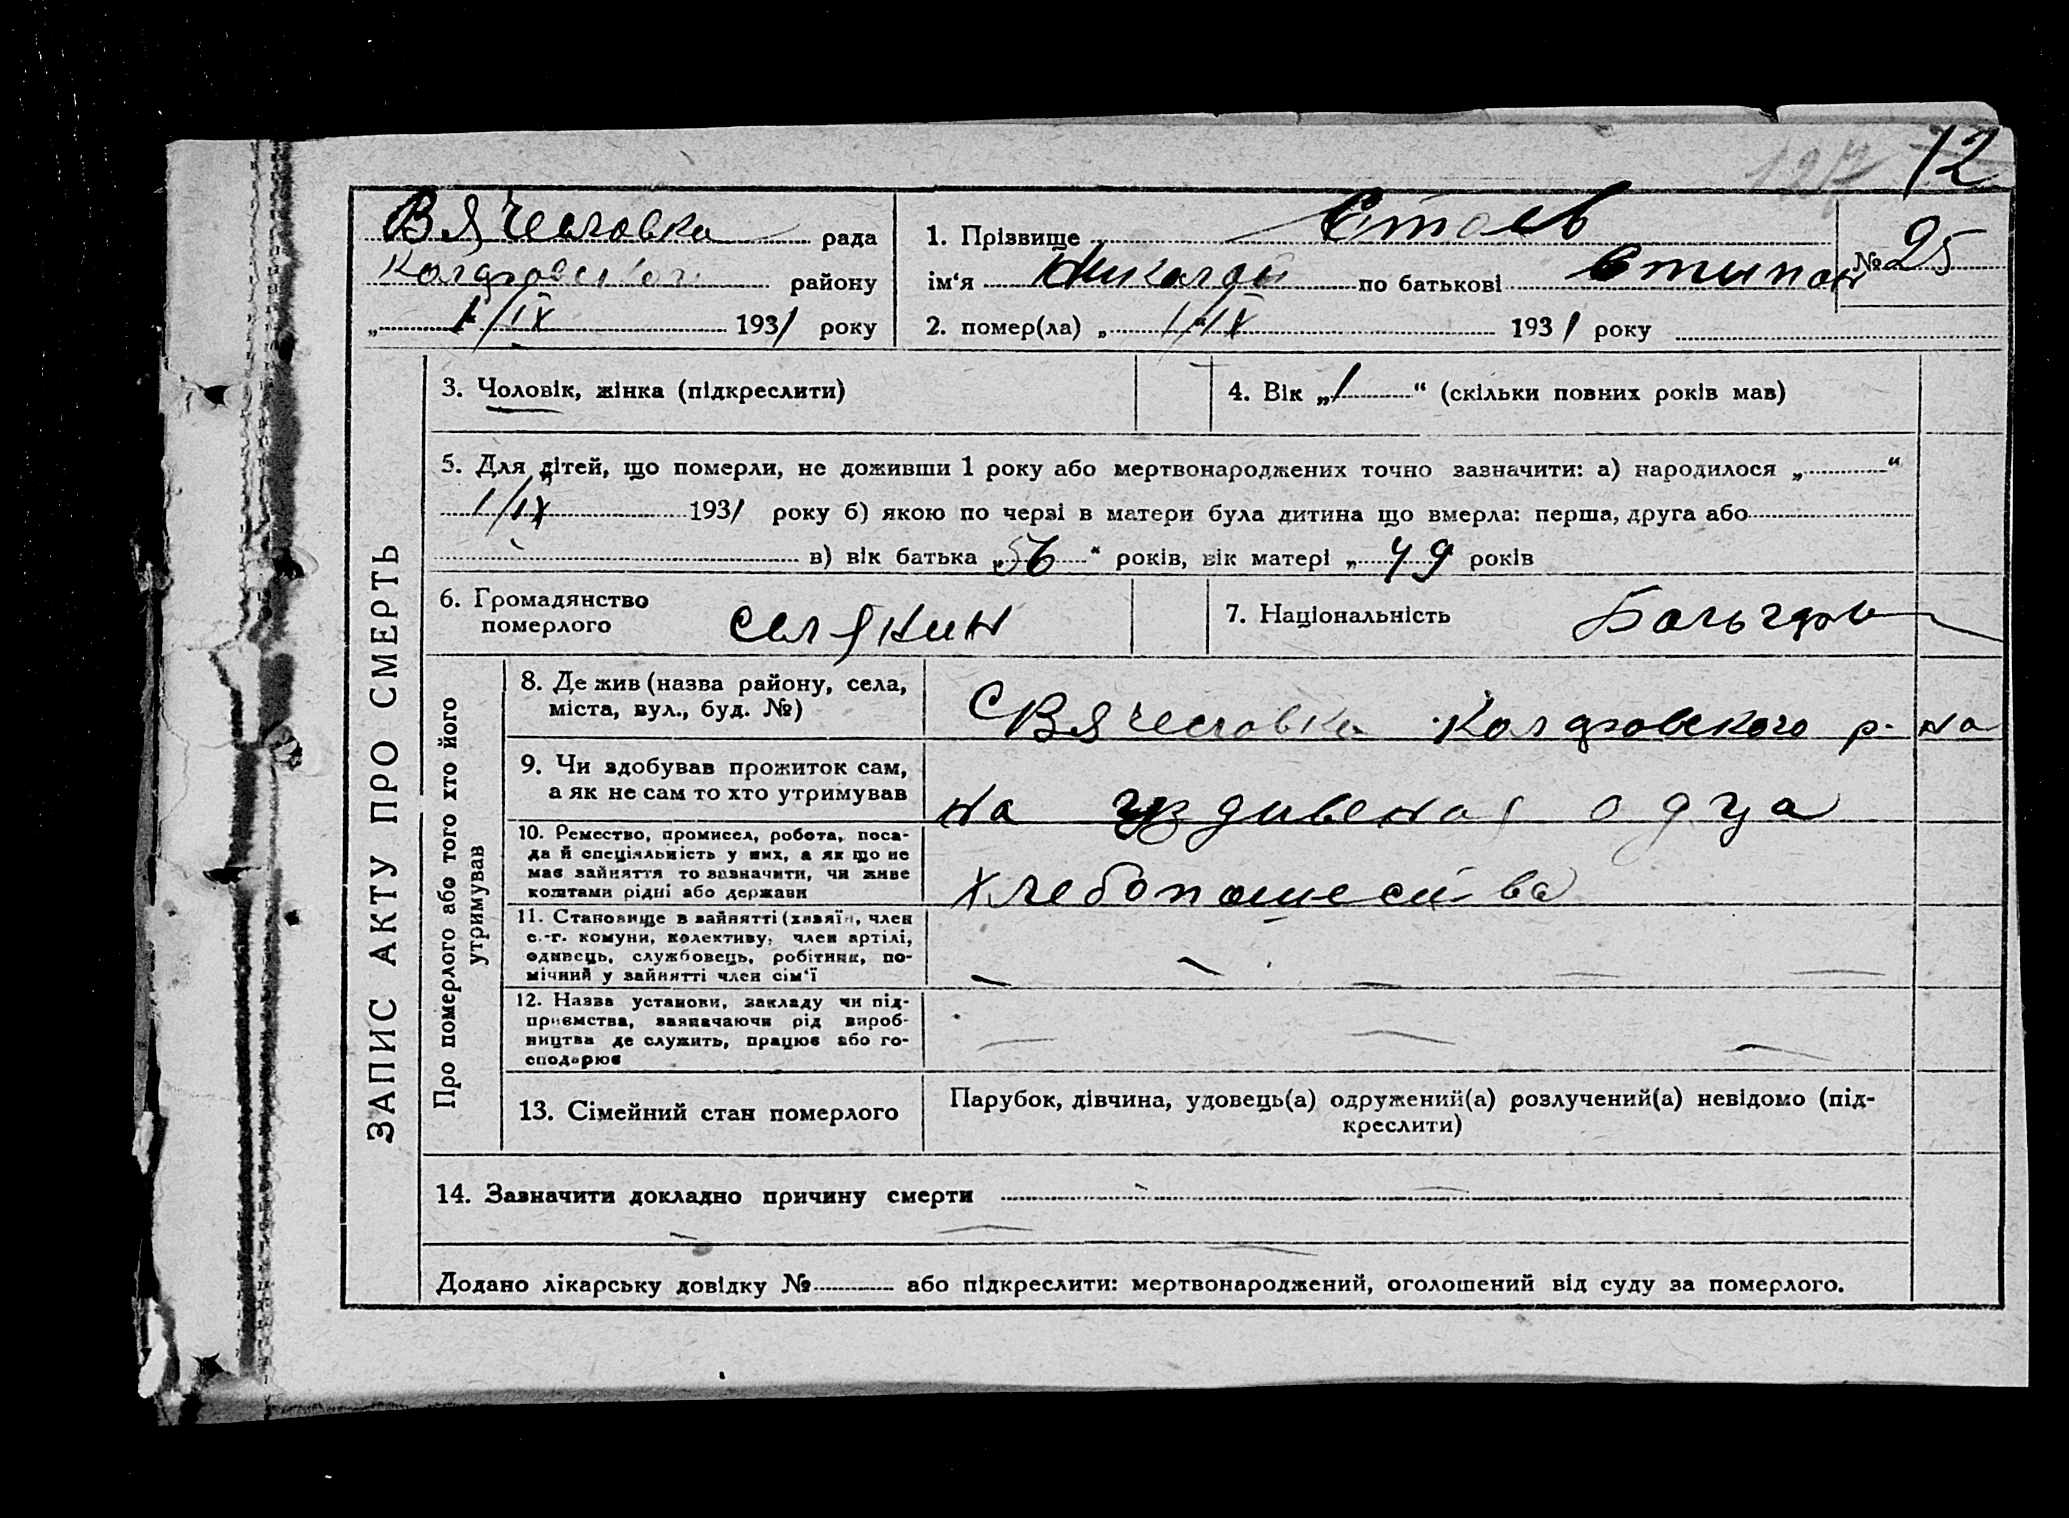 127 12
Вячеславка рада
району
„ 1/IX 1931 року
1. Прізвище Стоев
ім‘я Николай по батькові Стипан
№ 25
2. помер(ла) „ 1/IX 1931 року
ЗАПИС АКТУ ПРО СМЕРТЬ
3. Чоловік, жінка (підкреслити)
4. Вік „1“ (скільки повних років мав)
5. Для дітей, що померли, не доживши 1 року або мертвонароджених точно зазначити: а) народилося „ “
1/IX 1931 року б) якою по черзі в матери була дитина що вмерла: перша, друга або
в) вік батька „56“ років, вік матері „49 років
6. Громадянство
померлого
селянин
7. Національність
Про померлого або того хто його
утримував
8. Де жив (назва району, села,
міста, вул., буд. №)
С Вячеславка р-на
9. Чи здобував прожиток сам,
а як не сам то хто утримував
на
10. Ремество, промисел, робота, поса-
да й спеціяльність у них, а як що не
має зайняття то зазначити, чи живе
коштами рідні або держави
11. Становище в зайнятті (хазяїн, член
с.-г. комуни, колективу, член артілі,
одинець, службовець, робітник, по-
мічний у зайнятті член сім‘ї
12. Назва установи, закладу чи під-
приємства, зазначаючи рід вироб-
ництва де служить, працює або го-
сподарює
13. Сімейний стан померлого
Парубок, дівчина, удовець(а) одружений(а) розлучений(а) невідомо (під-
креслити)
14. Зазначити докладно причину смерти
Додано лікарську довідку № або підкреслити: мертвонароджений, оголошений від суду за померлого.